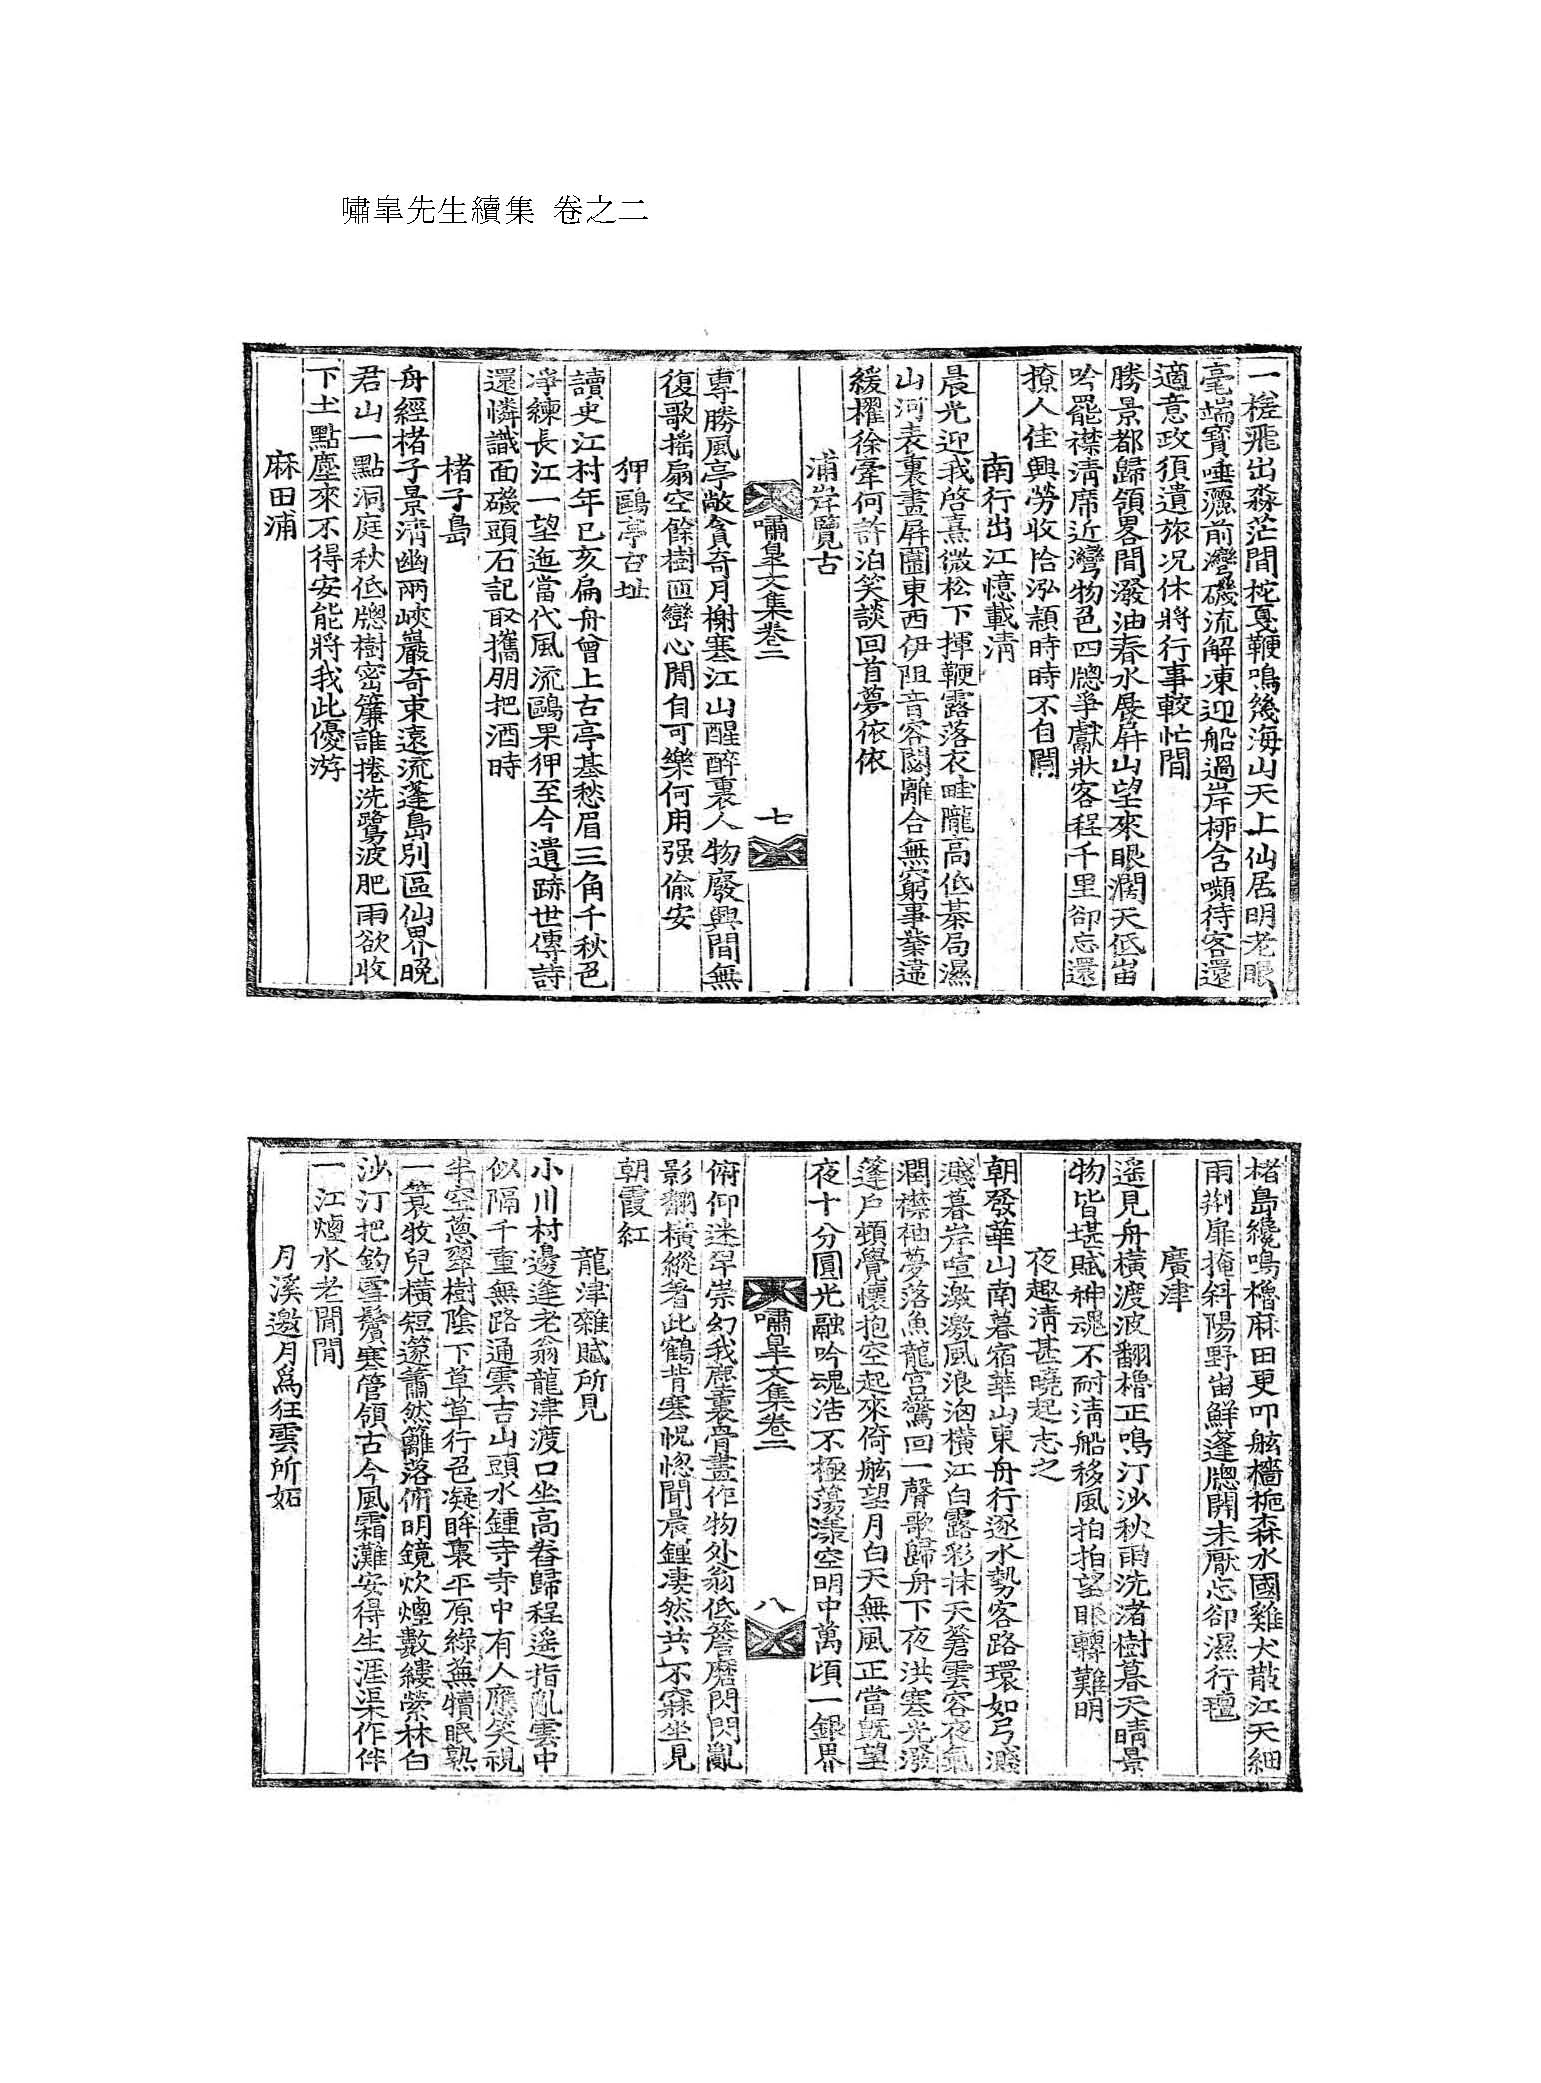 嘯皐先生續集 卷之二
一槎飛出淼茫間柁戛鞭鳴幾海山天上仙居明老眼
毫端寶唾灑前灣磯流解凍迎船過岸柳含嚬待客還
適意政須遺旅况休將行事較忙閒
勝景都歸領畧間潑油春水展屛山望來眼濶天低峀
吟罷襟淸席近灣物色四牕爭獻狀客程千里卻忘還
撩人佳興勞收拾泓穎時時不自閒
南行出江憶載淸
晨光迎我啓熹微松下揮鞭露落衣畦隴高低碁局濕
山河表裏畫屛圍東西伊阻音容闊離合無窮事業違
緩櫂徐牽何許泊笑談回首夢依依
浦岸覽古
專勝風亭敞貪奇月榭塞江山醒醉裏人物廢興間無
復歌搖扇空餘樹匝巒心閒自可樂何用强偸安
狎鷗亭古址
讀史江村年已亥扁舟曾上古亭基愁眉三角千秋色
淨練長江一望迤當代風流鷗果狎至今遺跡世傳詩
還憐識面磯頭石記取攜朋把酒時
楮子島
舟經楮子景淸幽兩峽巖奇束遠流蓬島別區仙界晩
君山一點洞庭秋低牕樹密簾誰捲洗鷺波肥雨欲收
下土點塵來不得安能將我此優游
麻田浦
嘯皐文集卷二
七
楮島纔鳴櫓麻田更叩舷檣桅森水國雞犬散江天細
雨荆扉掩斜陽野峀鮮蓬牕開未厭忘卻濕行氊
廣津
遥見舟橫渡波翻櫓正鳴汀沙秋雨洗渚樹暮天晴景
物皆堪賦神魂不耐淸船移風拍拍望眼轉難明
夜趣淸甚曉起志之
朝發華山南暮宿華山東舟行逐水勢客路環如弓濺
濺暮岸喧激激風浪洶橫江白露彩抹天蒼雲容夜氣
潤襟袖夢落魚龍宮驚回一聲歌歸舟下夜洪塞光潑
蓬戶頓覺懷抱空起來倚舷望月白天無風正當旣望
夜十分圓光融吟魂浩不極蕩漾空明中萬頃一銀界
俯仰迷罕崇幻我塵裏骨盡作物外翁低簷磨閃閃亂
影翻橫縱著此鶴背塞怳惚聞晨鍾凄然共不寐坐見
朝霞紅
龍津雜賦所見
小川村邊逢老翁龍津渡口坐高舂歸程遥指亂雲中
似隔千重無路通雲吉山頭水鍾寺寺中有人應笑視
半空蔥翠樹陰下草草行色凝眸裏平原綠蕪犢眠熟
一簑牧兒橫短篴蕭然籬落俯明鏡炊煙數縷縈林白
沙汀把釣雪鬢寒管領古今風霜灘安得生涯渠作伴
一江煙水老閒閒
月溪邀月爲狂雲所妬
嘯皐文集卷二
八